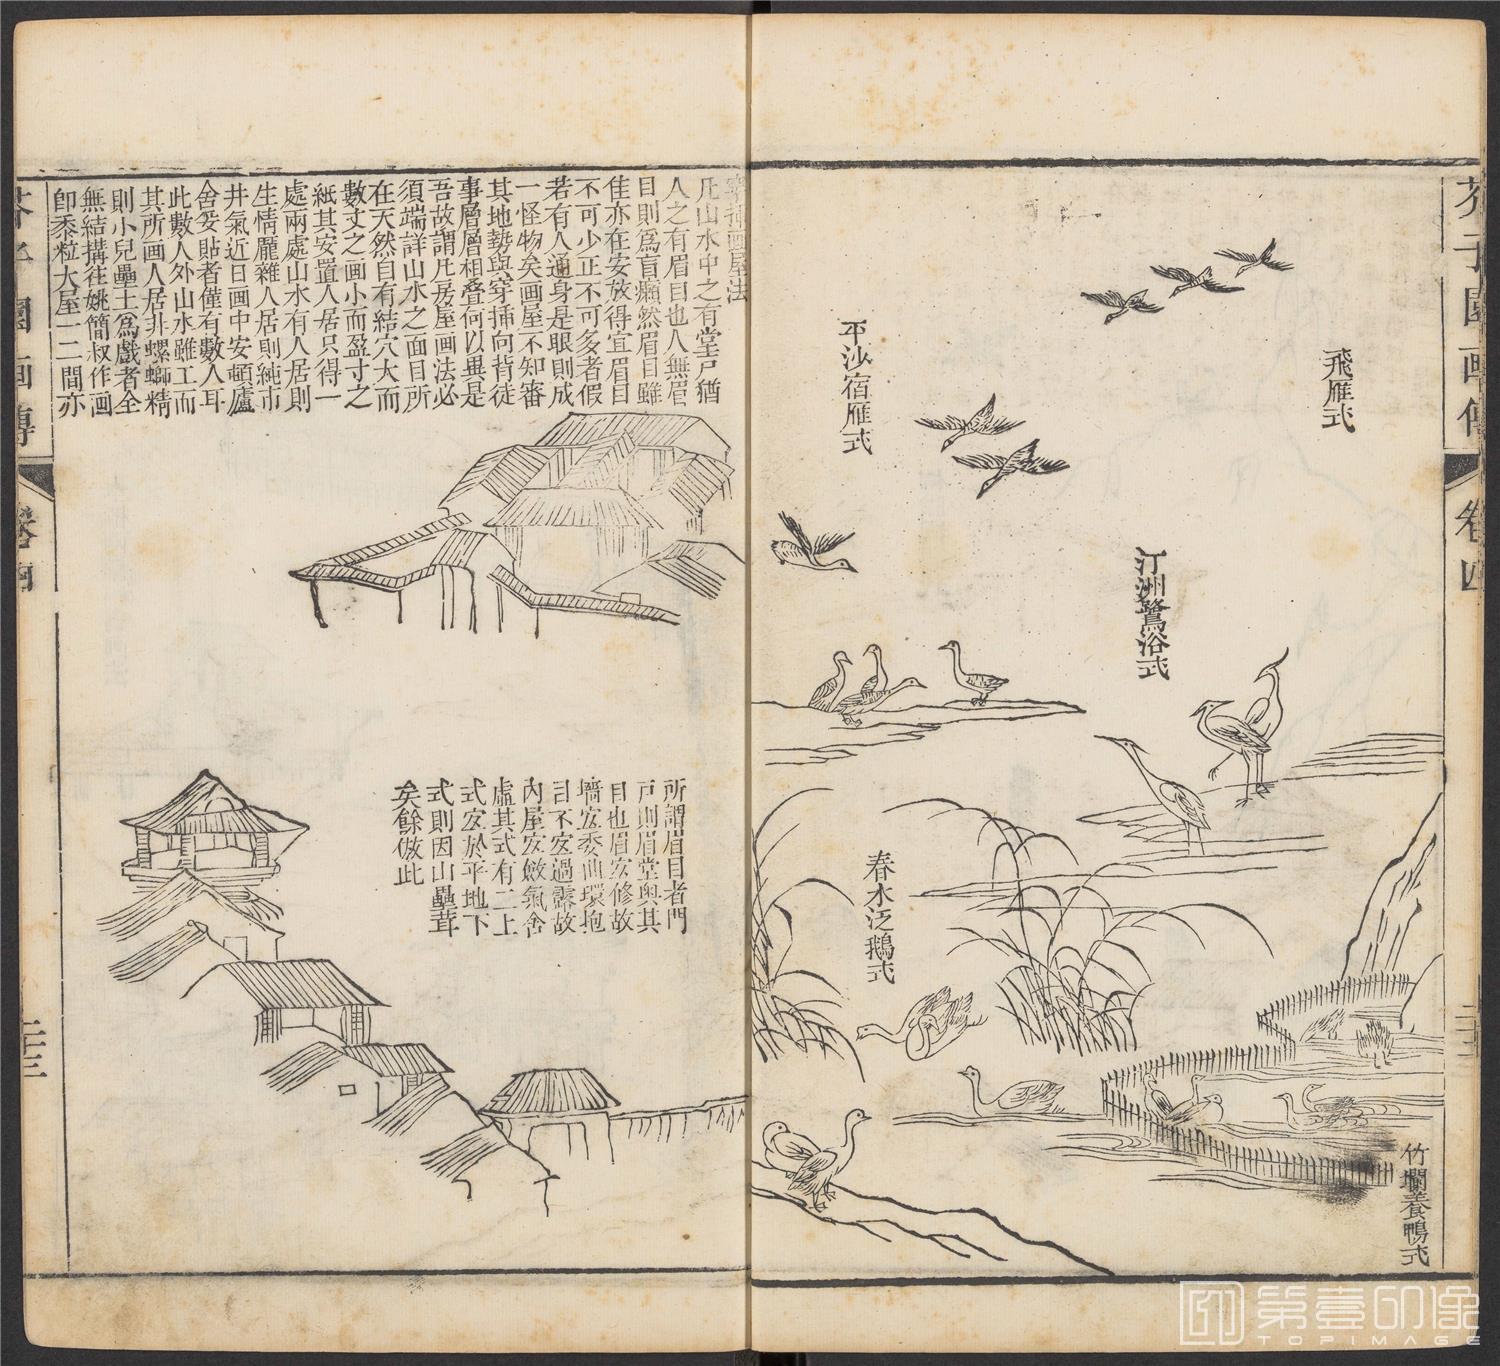 芥子園画傳 卷四
飛雁式
平沙宿雁式
汀洲鷺浴式
春水泛鵝式
竹欄養鴨式
穿挿画屋法
凡山水中之有堂戶猶
人之有眉目也人無眉
目則為盲癩然眉目雖
佳亦在安放得宜眉目
不可少正不可多者假
若有人通身是眼則成
一怪物矣画屋不知審
其地勢與穿挿向背徒
事層層相叠何以異是
吾故謂凡房屋画法必
須端詳山水之面目所
在天然自有結穴大而
數丈之画小而盈寸之
紙其安置人居只得一
處兩處山水有人居則
生情龎雜人居則純市
井氣近日画中安頓廬
舍妥貼者僅有數人耳
此數人外山水雖工而
其所画人居非螺螄精
則小兒壘土為戲者全
無結搆往姚簡叔作画
卽黍粒大屋一二間亦
所謂眉目者門
戶則眉堂奥其
目也眉宜修故
墻宜委曲環抱
目不宜過露故
內屋宜斂氣含
虛其式有二上
式宜於平地下
式則因山壘葺
矣餘倣此
芥子園画傳 卷四 二十三
第壹印像
TOPIMAGE